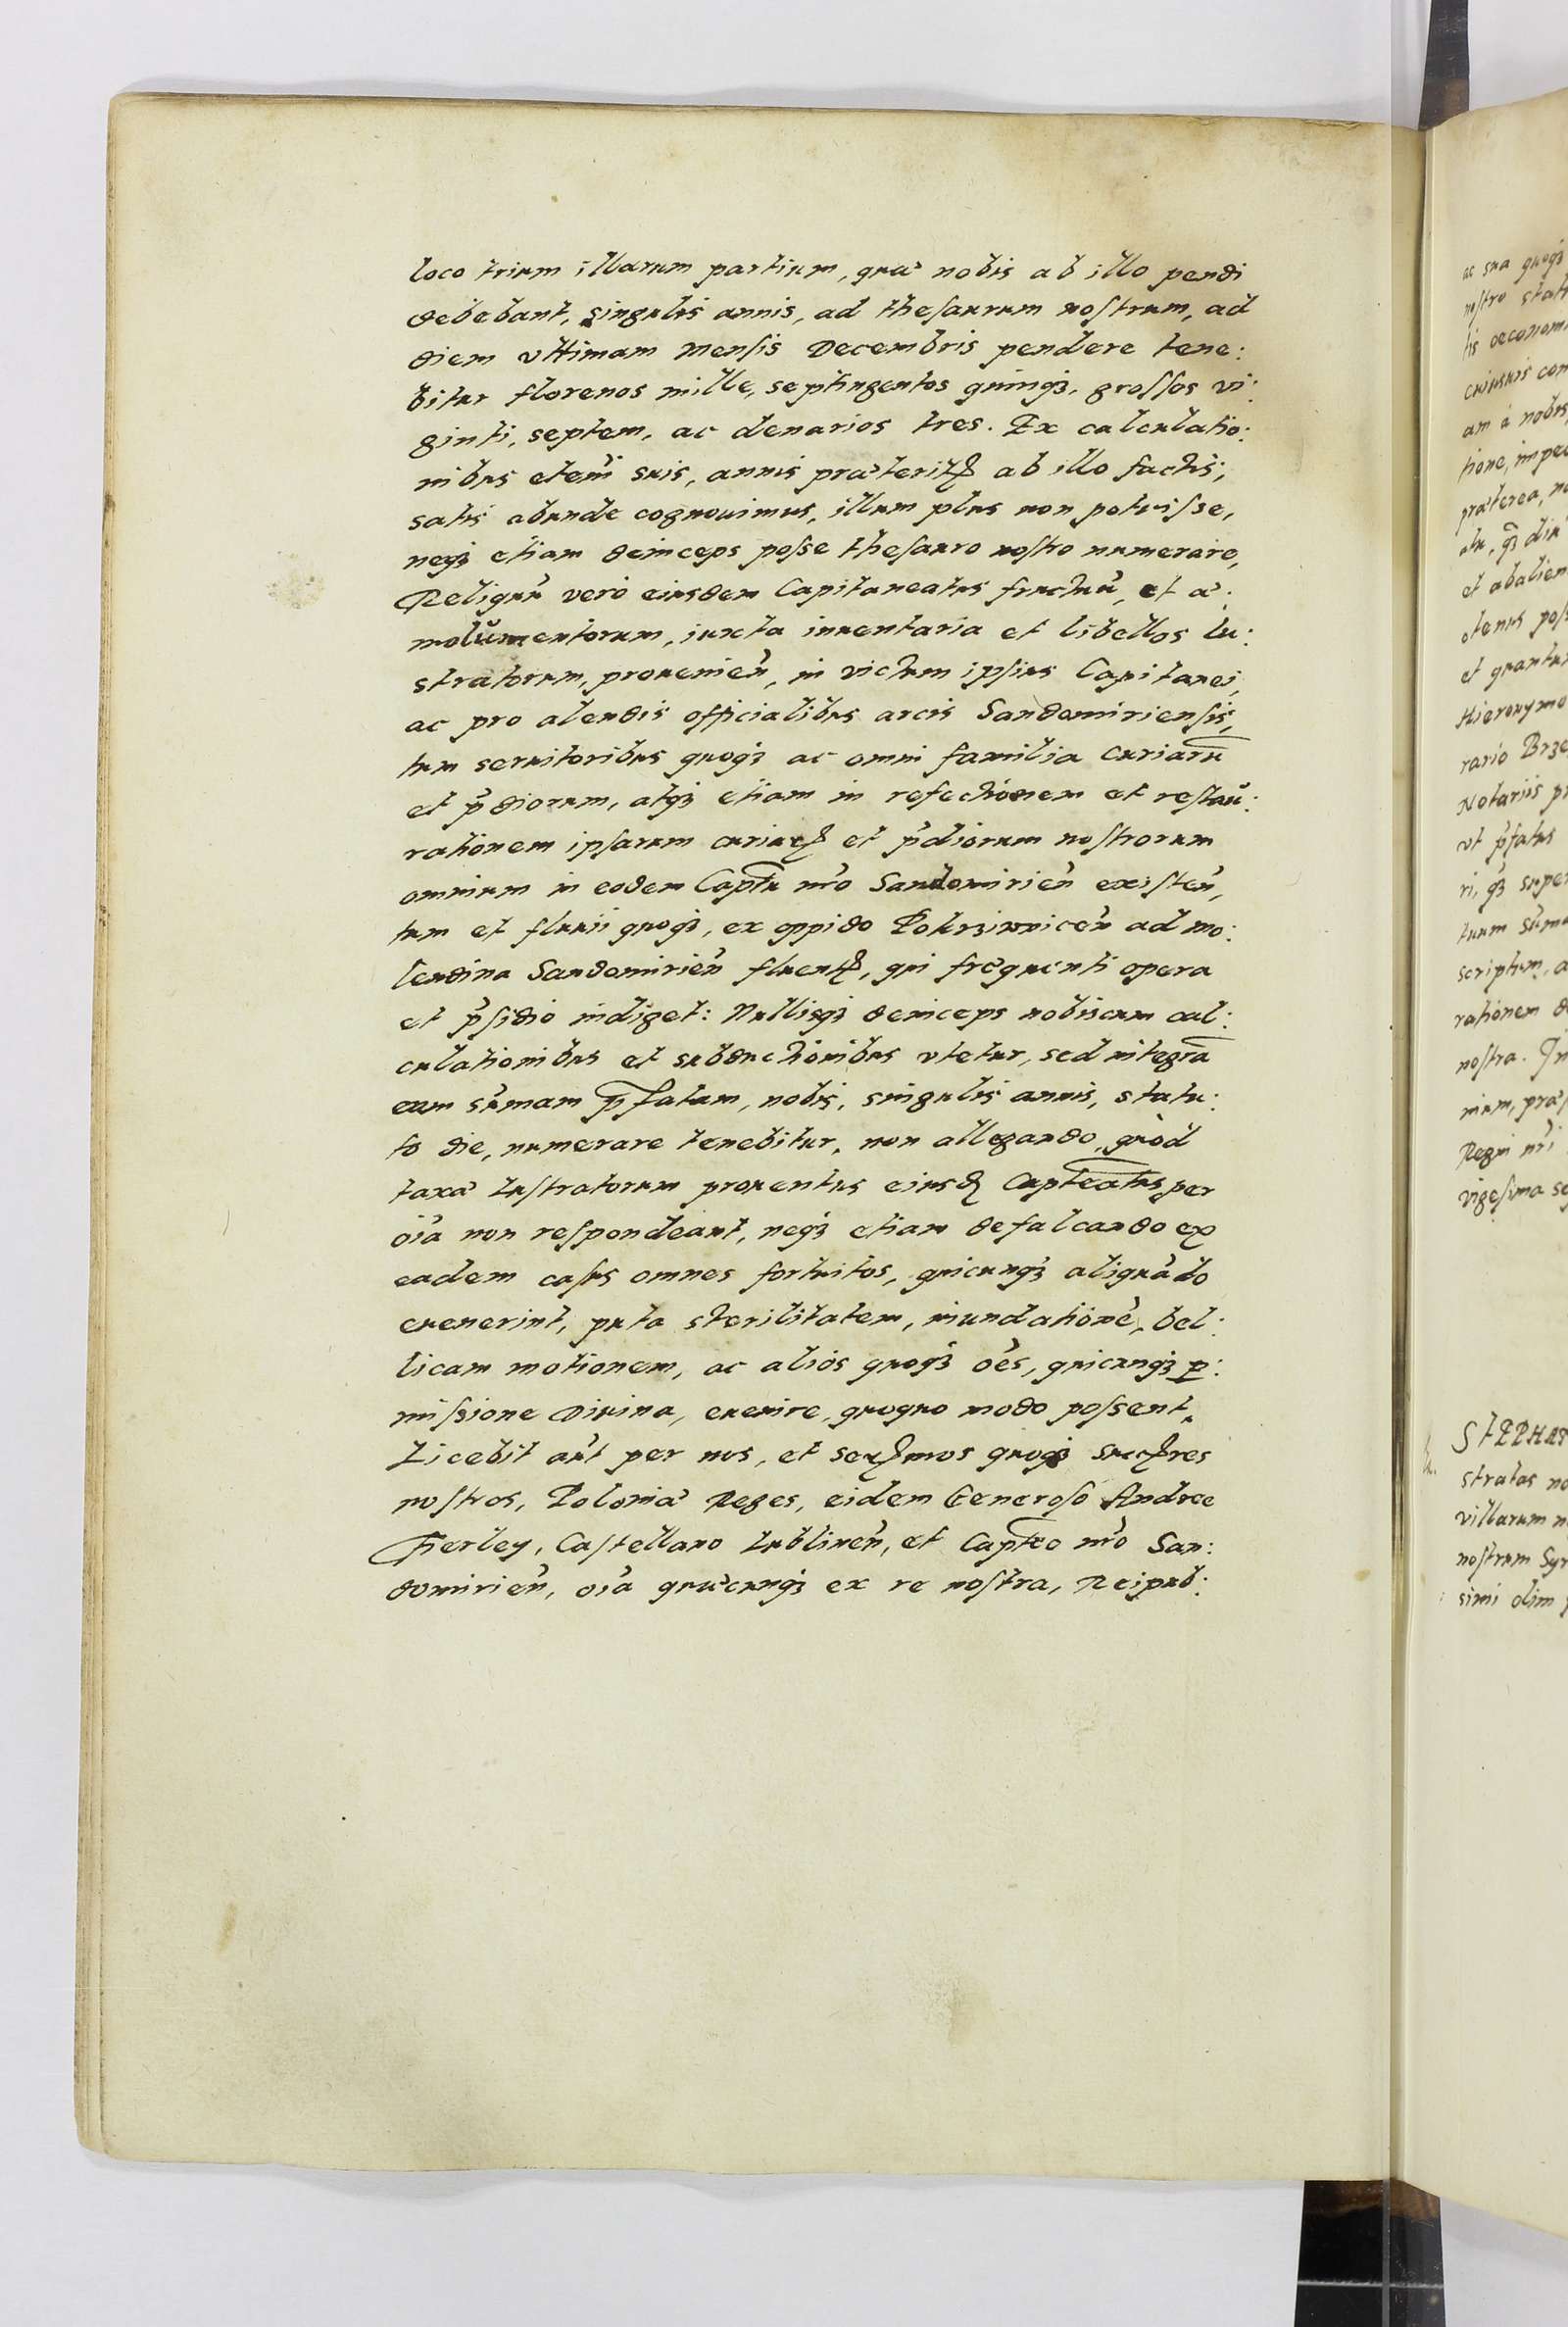 loco trium illarum partium, quæ nobis ab illo pendi
debebant, singulis annis, ad thesaurum nostrum, ad
diem vltimam Mensis Decembris pendere tene:
bitur florenos mille, septingentos quinqȝ, grossos vi:
ginti, septem, ac denarios tres. Ex calculatio:
nibus etem̃ suis, annis præteritꝭ ab illo factis,
satis abunde cognouimus, illum plus non potuisse,
neqȝ etiam deinceps posse thesauro nostro numerare,
Reliquũ verò eiusdem Capitaneatus fructuũ, et æ:
molumentorum, iuxta inuentaria et libellos lu:
stratorum, prouenieñ, in victum ipsius Capitanei,
ac pro alendis officialibus arcis Sandomiriensis,
tum seruitoribus quoqȝ ac omni familia Curiarũ
et p̃diorum, atqȝ etiam in refectionem et restau:
rationem ipsarum curiarꝝ et p̃diorum nostrorum
omnium in eodem Captu ñro Sandomirieñ existeñ,
tum et fluuii quoqȝ, ex oppido Pokrziwniceñ ad mo:
lendina Sandomirieñ fluentꝭ, qui frequenti opera
et p̃sidio indiget: Nullisqȝ deinceps nobiscum cal:
culationibus et subductionibus vtetur, sed integrã
eam sum̃am p̃fatam, nobis, singulis annis, statu:
to die, numerare tenebitur, non allegando, quòd
taxæ Lustratorum prouentus eiusđ Capteatus per
oĩa non respondeant, neqȝ etiam defalcando ex
eadem casus omnes fortuitos, quicunqȝ aliquãdo
euenerint, puta sterilitatem, inundationẽ, bel:
licam motionem, ac alios quoqȝ oẽs, quicunqȝ ꝑ:
missione Diuina, euenire, quoquo modo possent.
Licebit aũt per nos, et serꝭmos quoqȝ succꝭres
nostros, Poloniæ Reges, eidem Generoso Andree
Fierley, Castellano Lublineñ, et Capteo ñro San:
domirieñ, oĩa quæcunqȝ ex re nostra, Reipub:
ac sua quoqȝ
nostro stat
tis oeconom
cuiusuis con
am à nobis
tione, impe
præterea, n
atu, qȝ diu
et abalien
otenus pos
et quantu
Hieronymo
rario Brze
Notariis p
vt p̃fatus
ri, qȝ super
tuum sum̃
scriptum, a
rationem d
nostra. In
nium, præ
Regni ñri
vigesima se
STEPHAN
stratas no
villarum n
nostrum Syr
simi olim